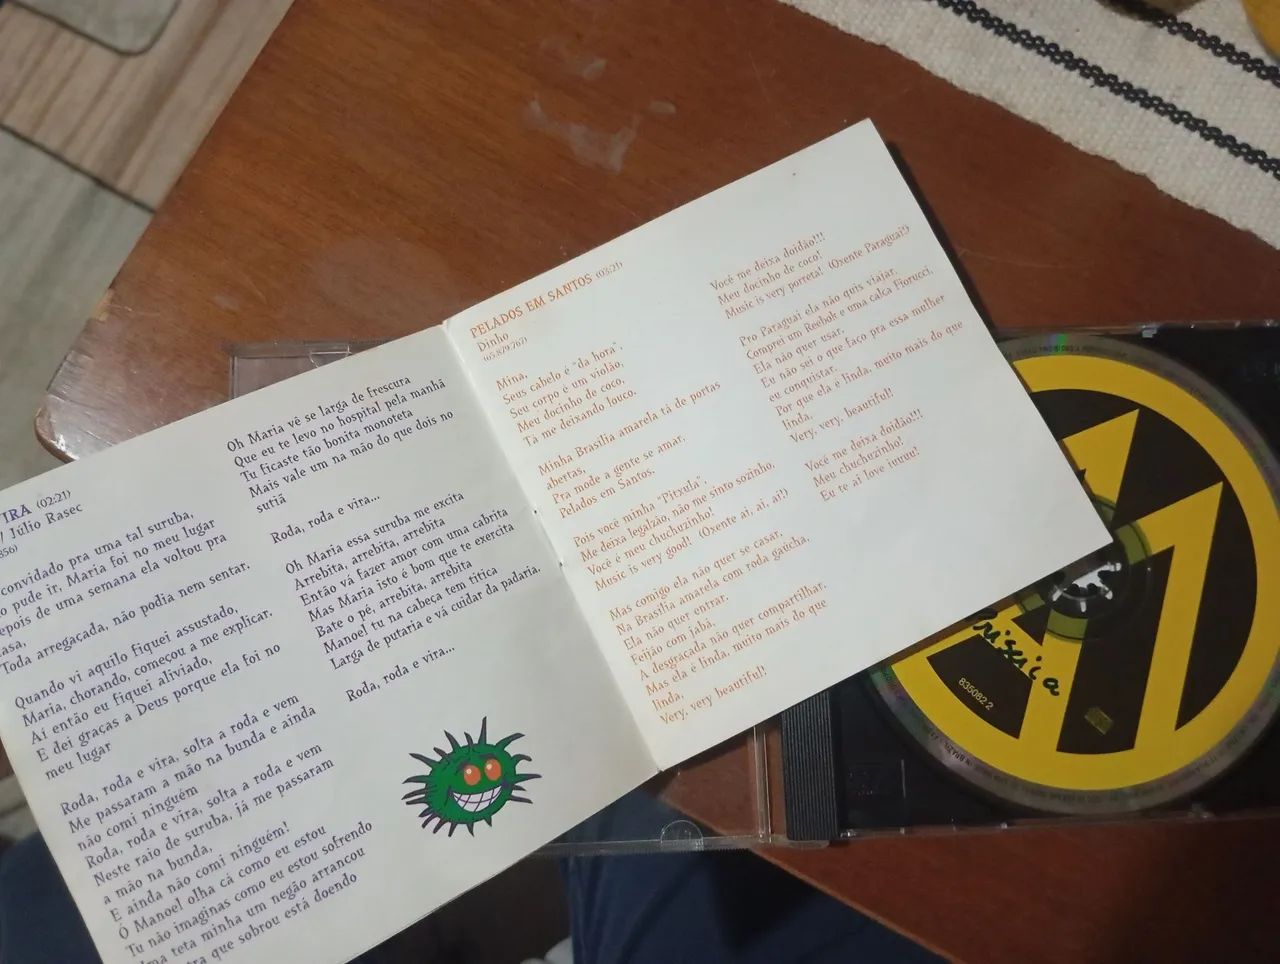 VIRA (02:21)
/ Júlio Rasec
856)
convidado pra uma tal suruba,
o pude ir, Maria foi no meu lugar
epois de uma semana ela voltou pra
casa,
Toda arregaçada, não podia nem sentar.
Quando vi aquilo fiquei assustado,
Maria, chorando, começou a me explicar.
Aí então eu fiquei aliviado,
E dei graças a Deus porque ela foi no
meu lugar
Roda, roda e vira, solta a roda e vem
Me passaram a mão na bunda e ainda
não comi ninguém
Roda, roda e vira, solta a roda e vem
Neste raio de suruba, já me passaram
a mão na bunda,
E ainda não comi ninguém!
Ô Manoel olha cá como eu estou
Tu não imaginas como eu estou sofrendo
uma teta minha um negão arrancou
tra que sobrou está doendo
Oh Maria vê se larga de frescura
Que eu te levo no hospital pela manhã
Tu ficaste tão bonita monoteta
Mais vale um na mão do que dois no
sutiã
Roda, roda e vira...
Oh Maria essa suruba me excita
Arrebita, arrebita, arrebita
Então vá fazer amor com uma cabrita
Mas Maria isto é bom que te exercita
Bate o pé, arrebita, arrebita
Manoel tu na cabeça tem titica
Larga de putaria e vá cuidar da padaria.
Roda, roda e vira...
PELADOS EM SANTOS (03:21)
Dinho
(65.879.767)
Mina,
Seus cabelo é "da hora",
Seu corpo é um violão,
Meu docinho de coco,
Tá me deixando louco.
Minha Brasília amarela tá de portas
abertas,
Pra mode a gente se amar,
Pelados em Santos.
Pois você minha "Pitxula",
Me deixa legalzão, não me sinto sozinho,
Você é meu chuchuzinho!
Music is very good! (Oxente ai, ai, ai!)
Mas comigo ela não quer se casar,
Na Brasília amarela com roda gaúcha,
Ela não quer entrar.
Feijão com jabá,
A desgraçada não quer compartilhar.
Mas ela é linda, muito mais do que
linda,
Very, very beautiful!
Você me deixa doidão!!!
Meu docinho de coco!
Music is very porreta! (Oxente Paraguai!)
Pro Paraguai ela não quis viajar,
Comprei um Reebok e uma calça Fiorucci,
Ela não quer usar.
Eu não sei o que faço pra essa mulher
eu conquistar,
Por que ela é linda, muito mais do que
linda,
Very, very beautiful!
Você me deixa doidão!!!
Meu chuchuzinho!
Eu te ai love iuuuu!
835082 2